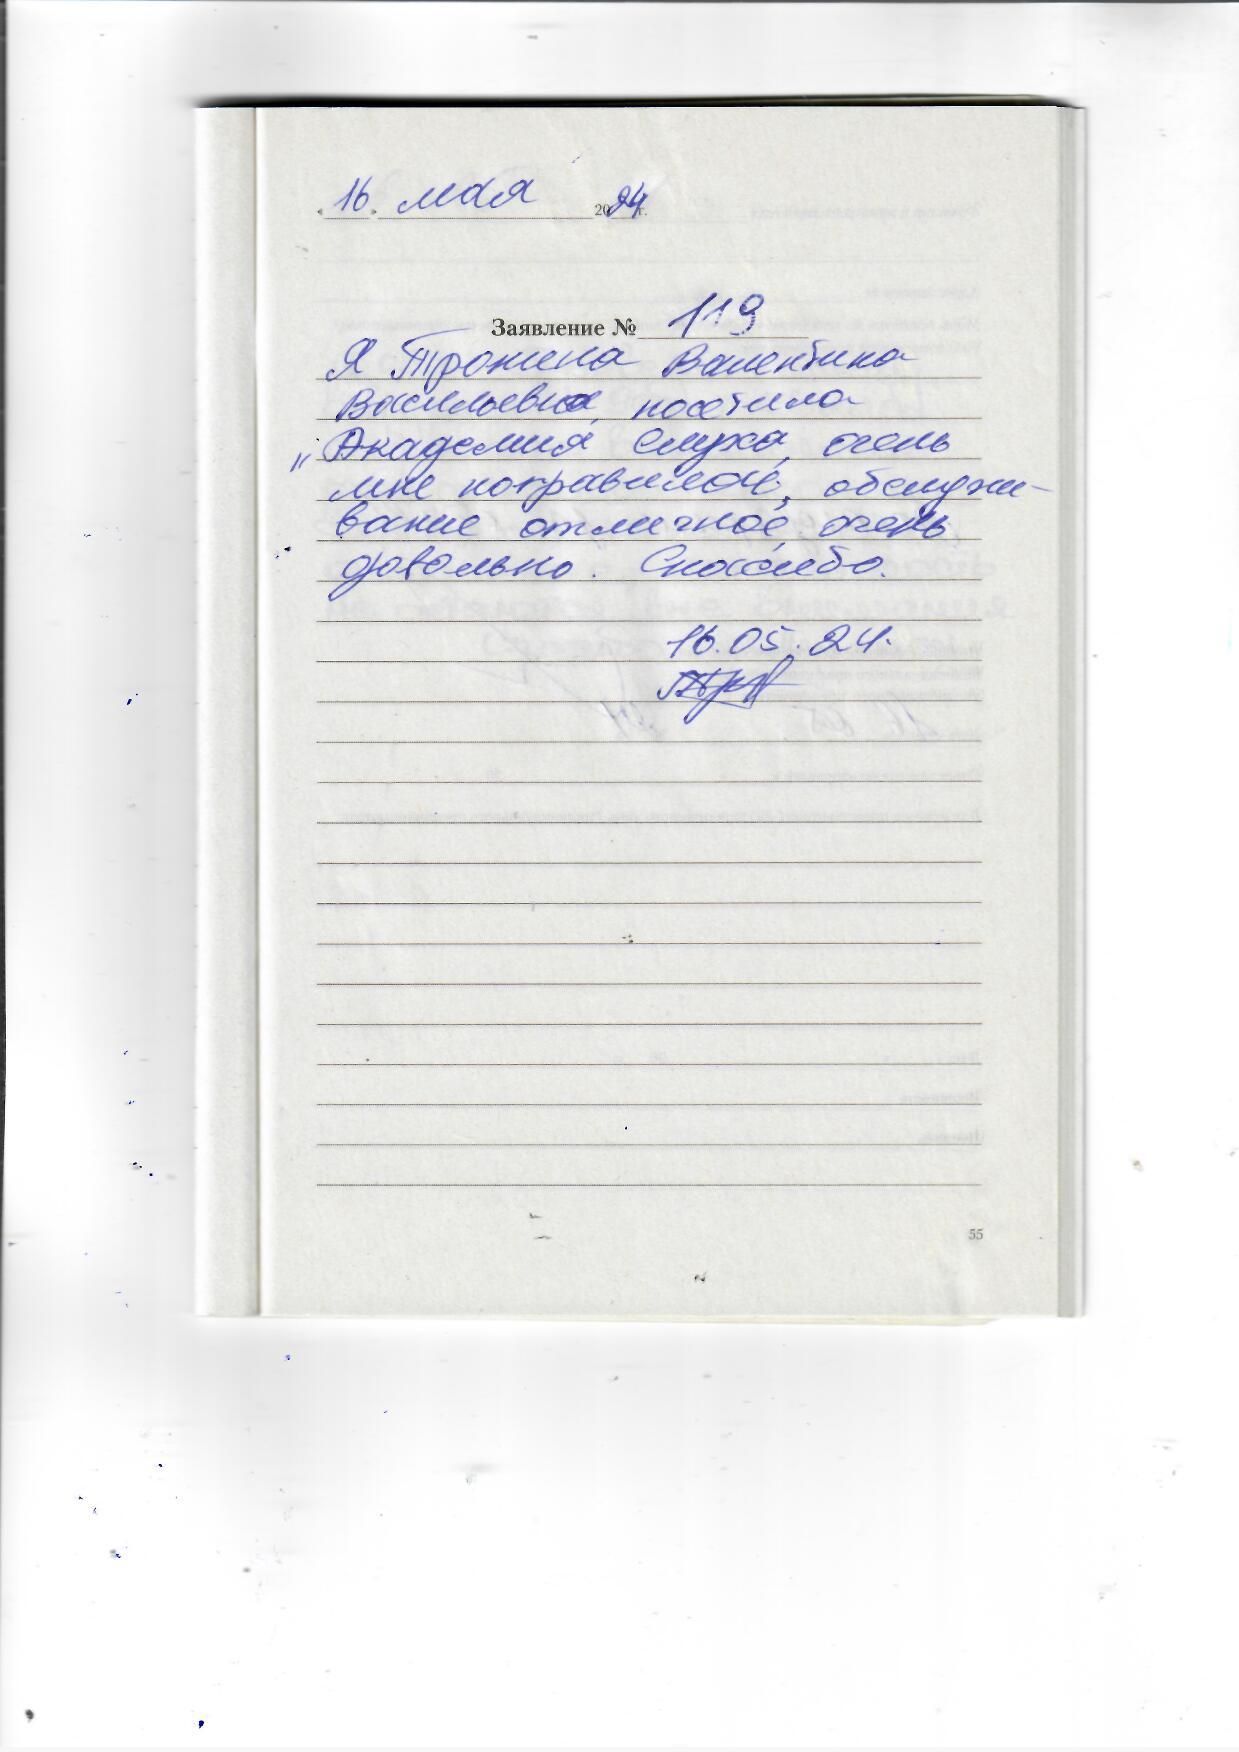 « 16 » мая 2024 г.
Заявление № 119
Я Тронина Валентина
Васильевна, посетила
"Академия Слуха, очень
мне понравилось, обслужи-
вание отличное, очень
довольно. Спасибо.
16.05.24.
55